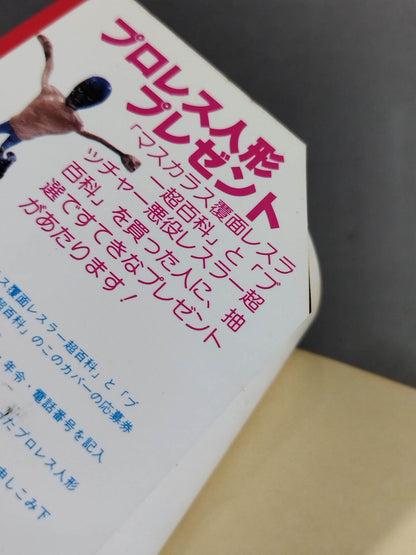 プロレス人形
プレゼント
「マスカラス覆面レスラ
ー超百科」と「ブ
ッチャー悪役レスラー超
百科」を買った人に、抽
選ですてきなプレゼント
があたります！
ス覆面レスラー超百科」と「ブ
超百科」のこのカバーの応募券
年令・電話番号を記入
ったプロレス人形
申しこみ下